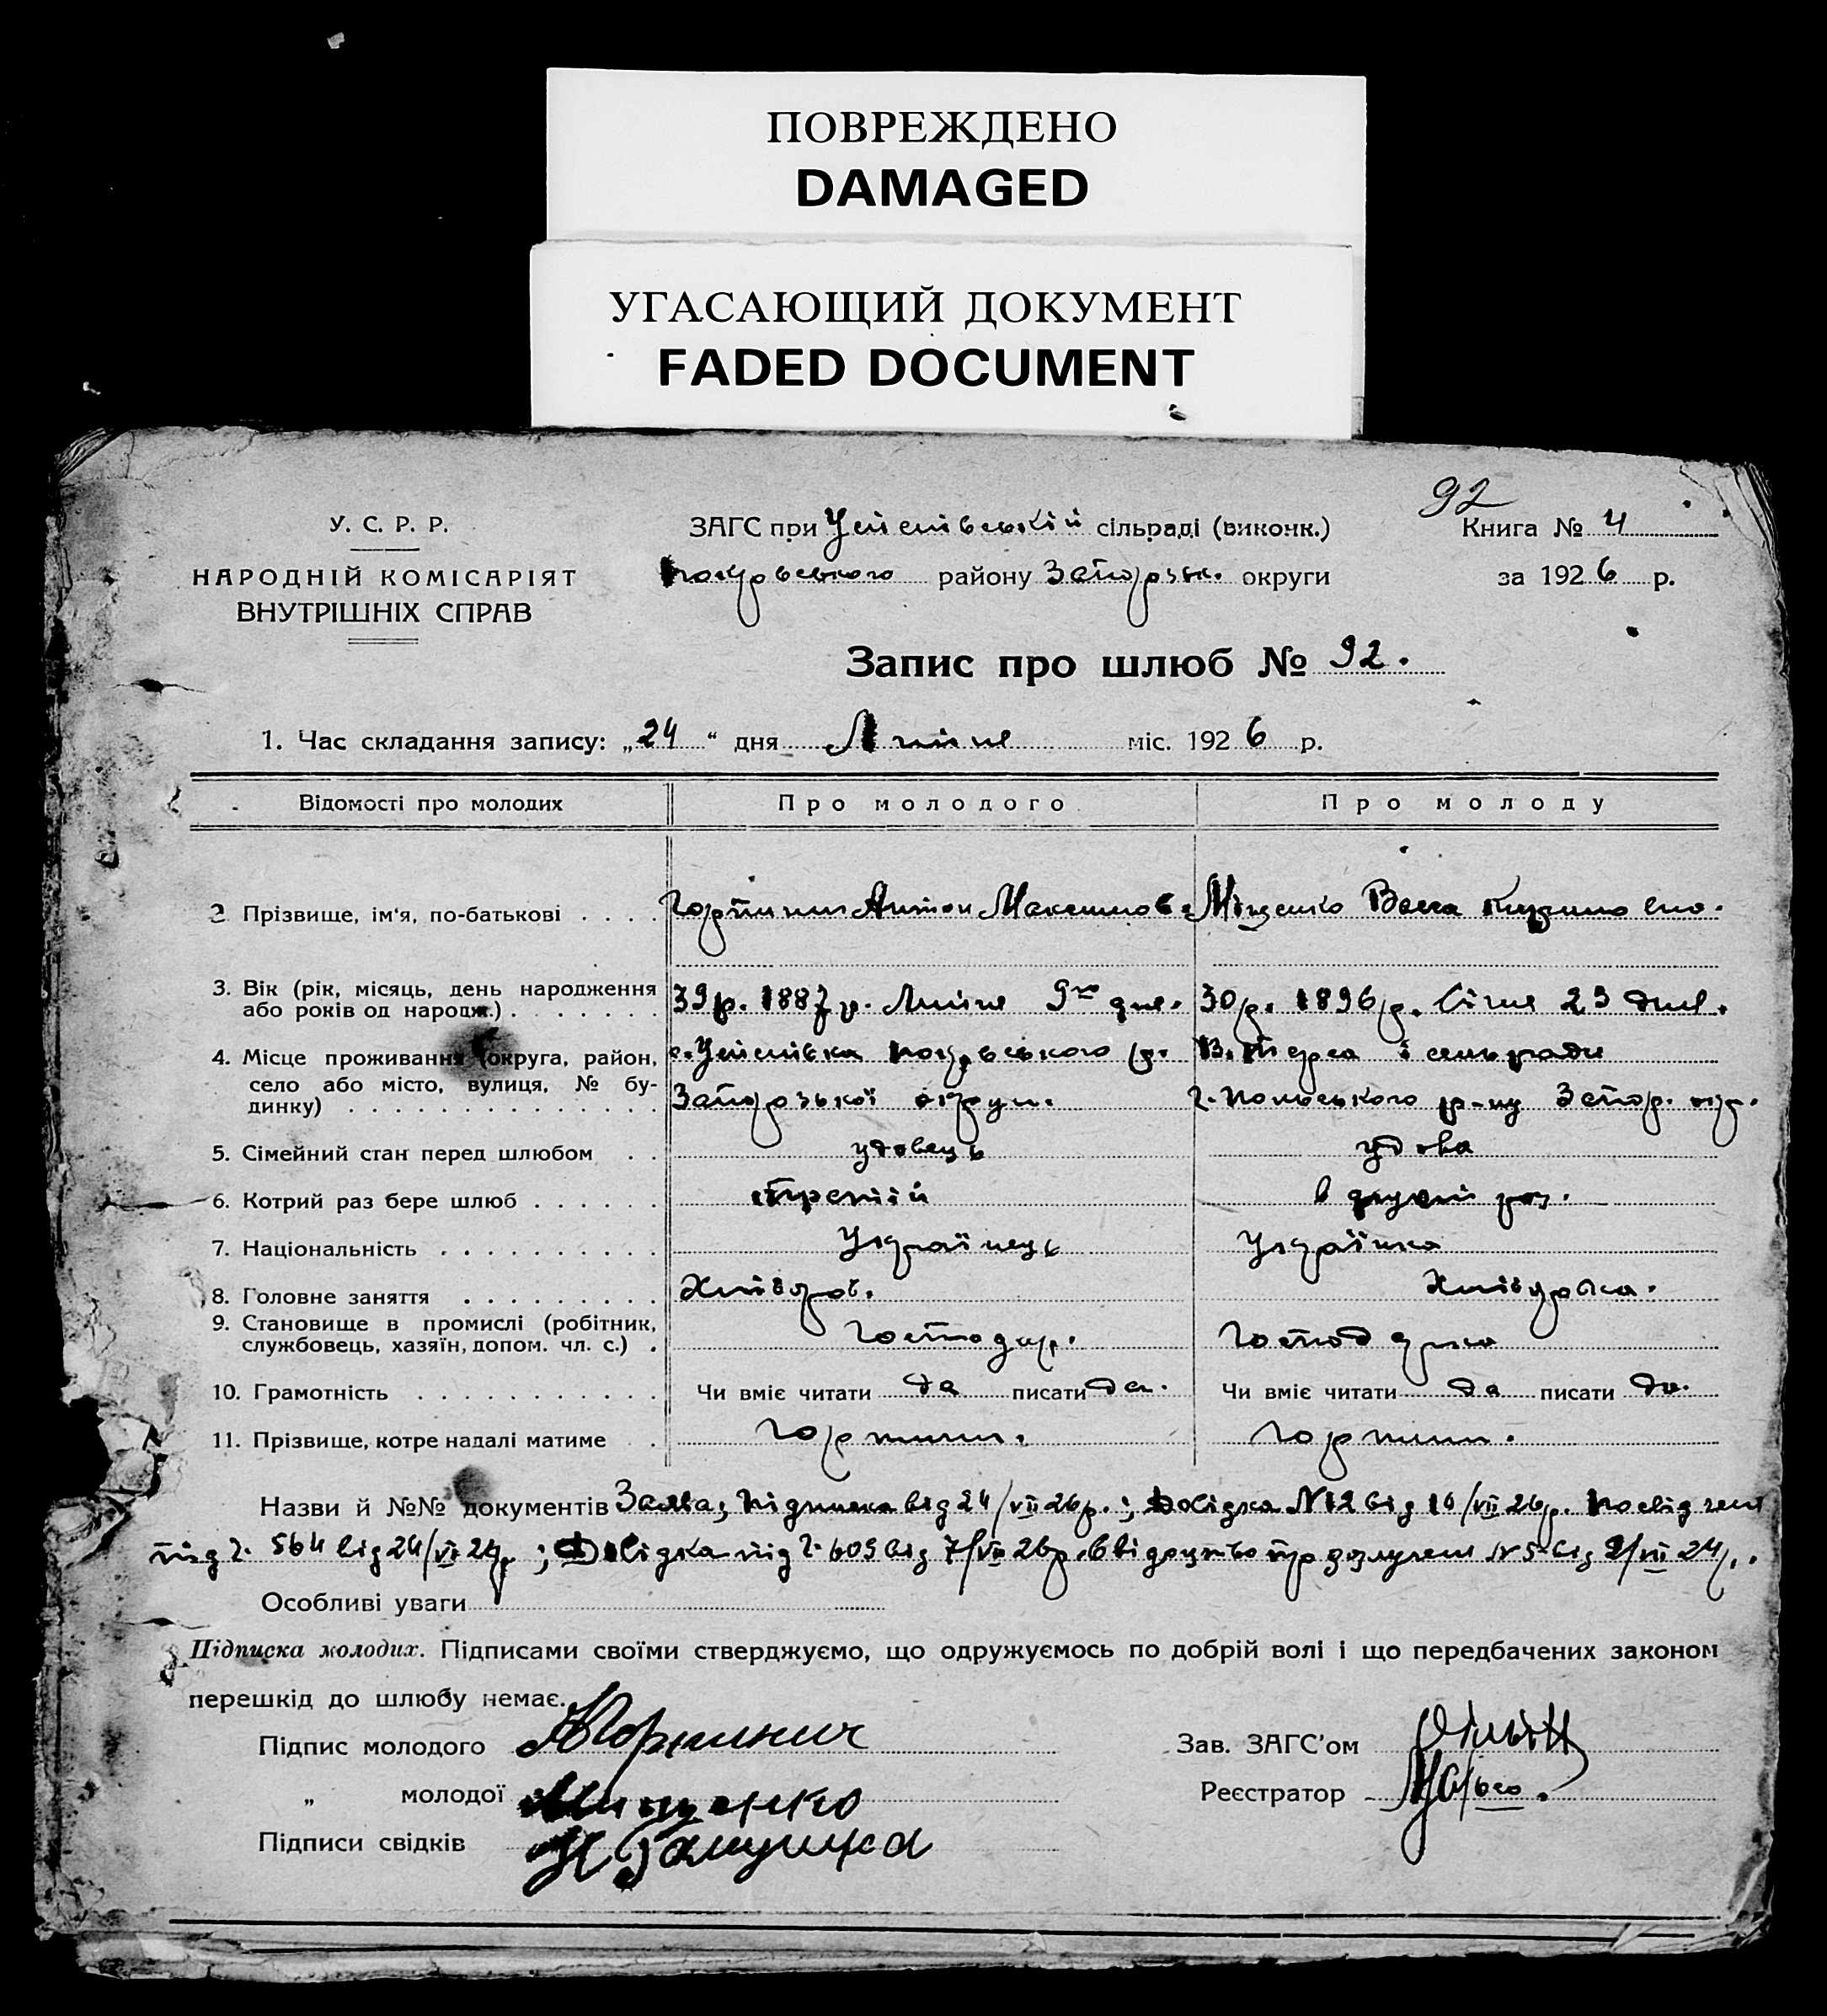 ПОВРЕЖДЕНО
DAMAGED
УГАСАЮЩИЙ ДОКУМЕНТ
FADED DOCUMENT
92
У. С. Р. Р.
НАРОДНІЙ КОМІСАРІЯТ
ВНУТРІШНІХ СПРАВ
ЗАГС при Успенівській сільраді (виконк.)
Покровського району Запорізьк. округи
Книга № 4
за 1926 р.
Запис про шлюб № 92.
1. Час складання запису: „24“ дня Липня міс. 1926 р.
Відомості про молодих Про молодого Про молоду
2 Прізвище, ім‘я, по-батькові Антон Максимов. Міщенко
3. Вік (рік, місяць, день народження
або років од народж.) 39 р. 1887 р. Липня 9го дня. 30 р. 1896 р. Січня 23 дня.
4. Місце проживання (округа, район, с. Успенівка Покровського р. і сельради
село або місто, вулиця, № бу-
динку) Запорізької округи. р-ну Запор. окр.
5. Сімейний стан перед шлюбом удовець удова
6. Котрий раз бере шлюб третій в другий раз.
7. Національність Українець Українка
8. Головне заняття Хлібороб. Хліборобка.
9. Становище в промислі (робітник,
службовець, хазяїн, допом. чл. с.) Господар. Господарка
10. Грамотність Чи вміє читати да писати да. Чи вміє читати да писати да.
11. Прізвище, котре надалі матиме
Назви й №№ документів Заява; Підписка від 24/VII 26 р.; Довідка N12 від 16/VII 26 р. Посвідчення
під ч. 564 від 24/VI 24 р.; Довідка під ч. 609 від 7/VII 26 р. Свідоцтво про розлучення N 5 від 9/VII 24 р.
Особливі уваги
Підписка молодих. Підписами своїми стверджуємо, що одружуємось по добрій волі і що передбачених законом
перешкід до шлюбу немає.
Підпис молодого
Зав. ЗАГС'ом
„ молодої Мищенко
Реєстратор
Підписи свідків